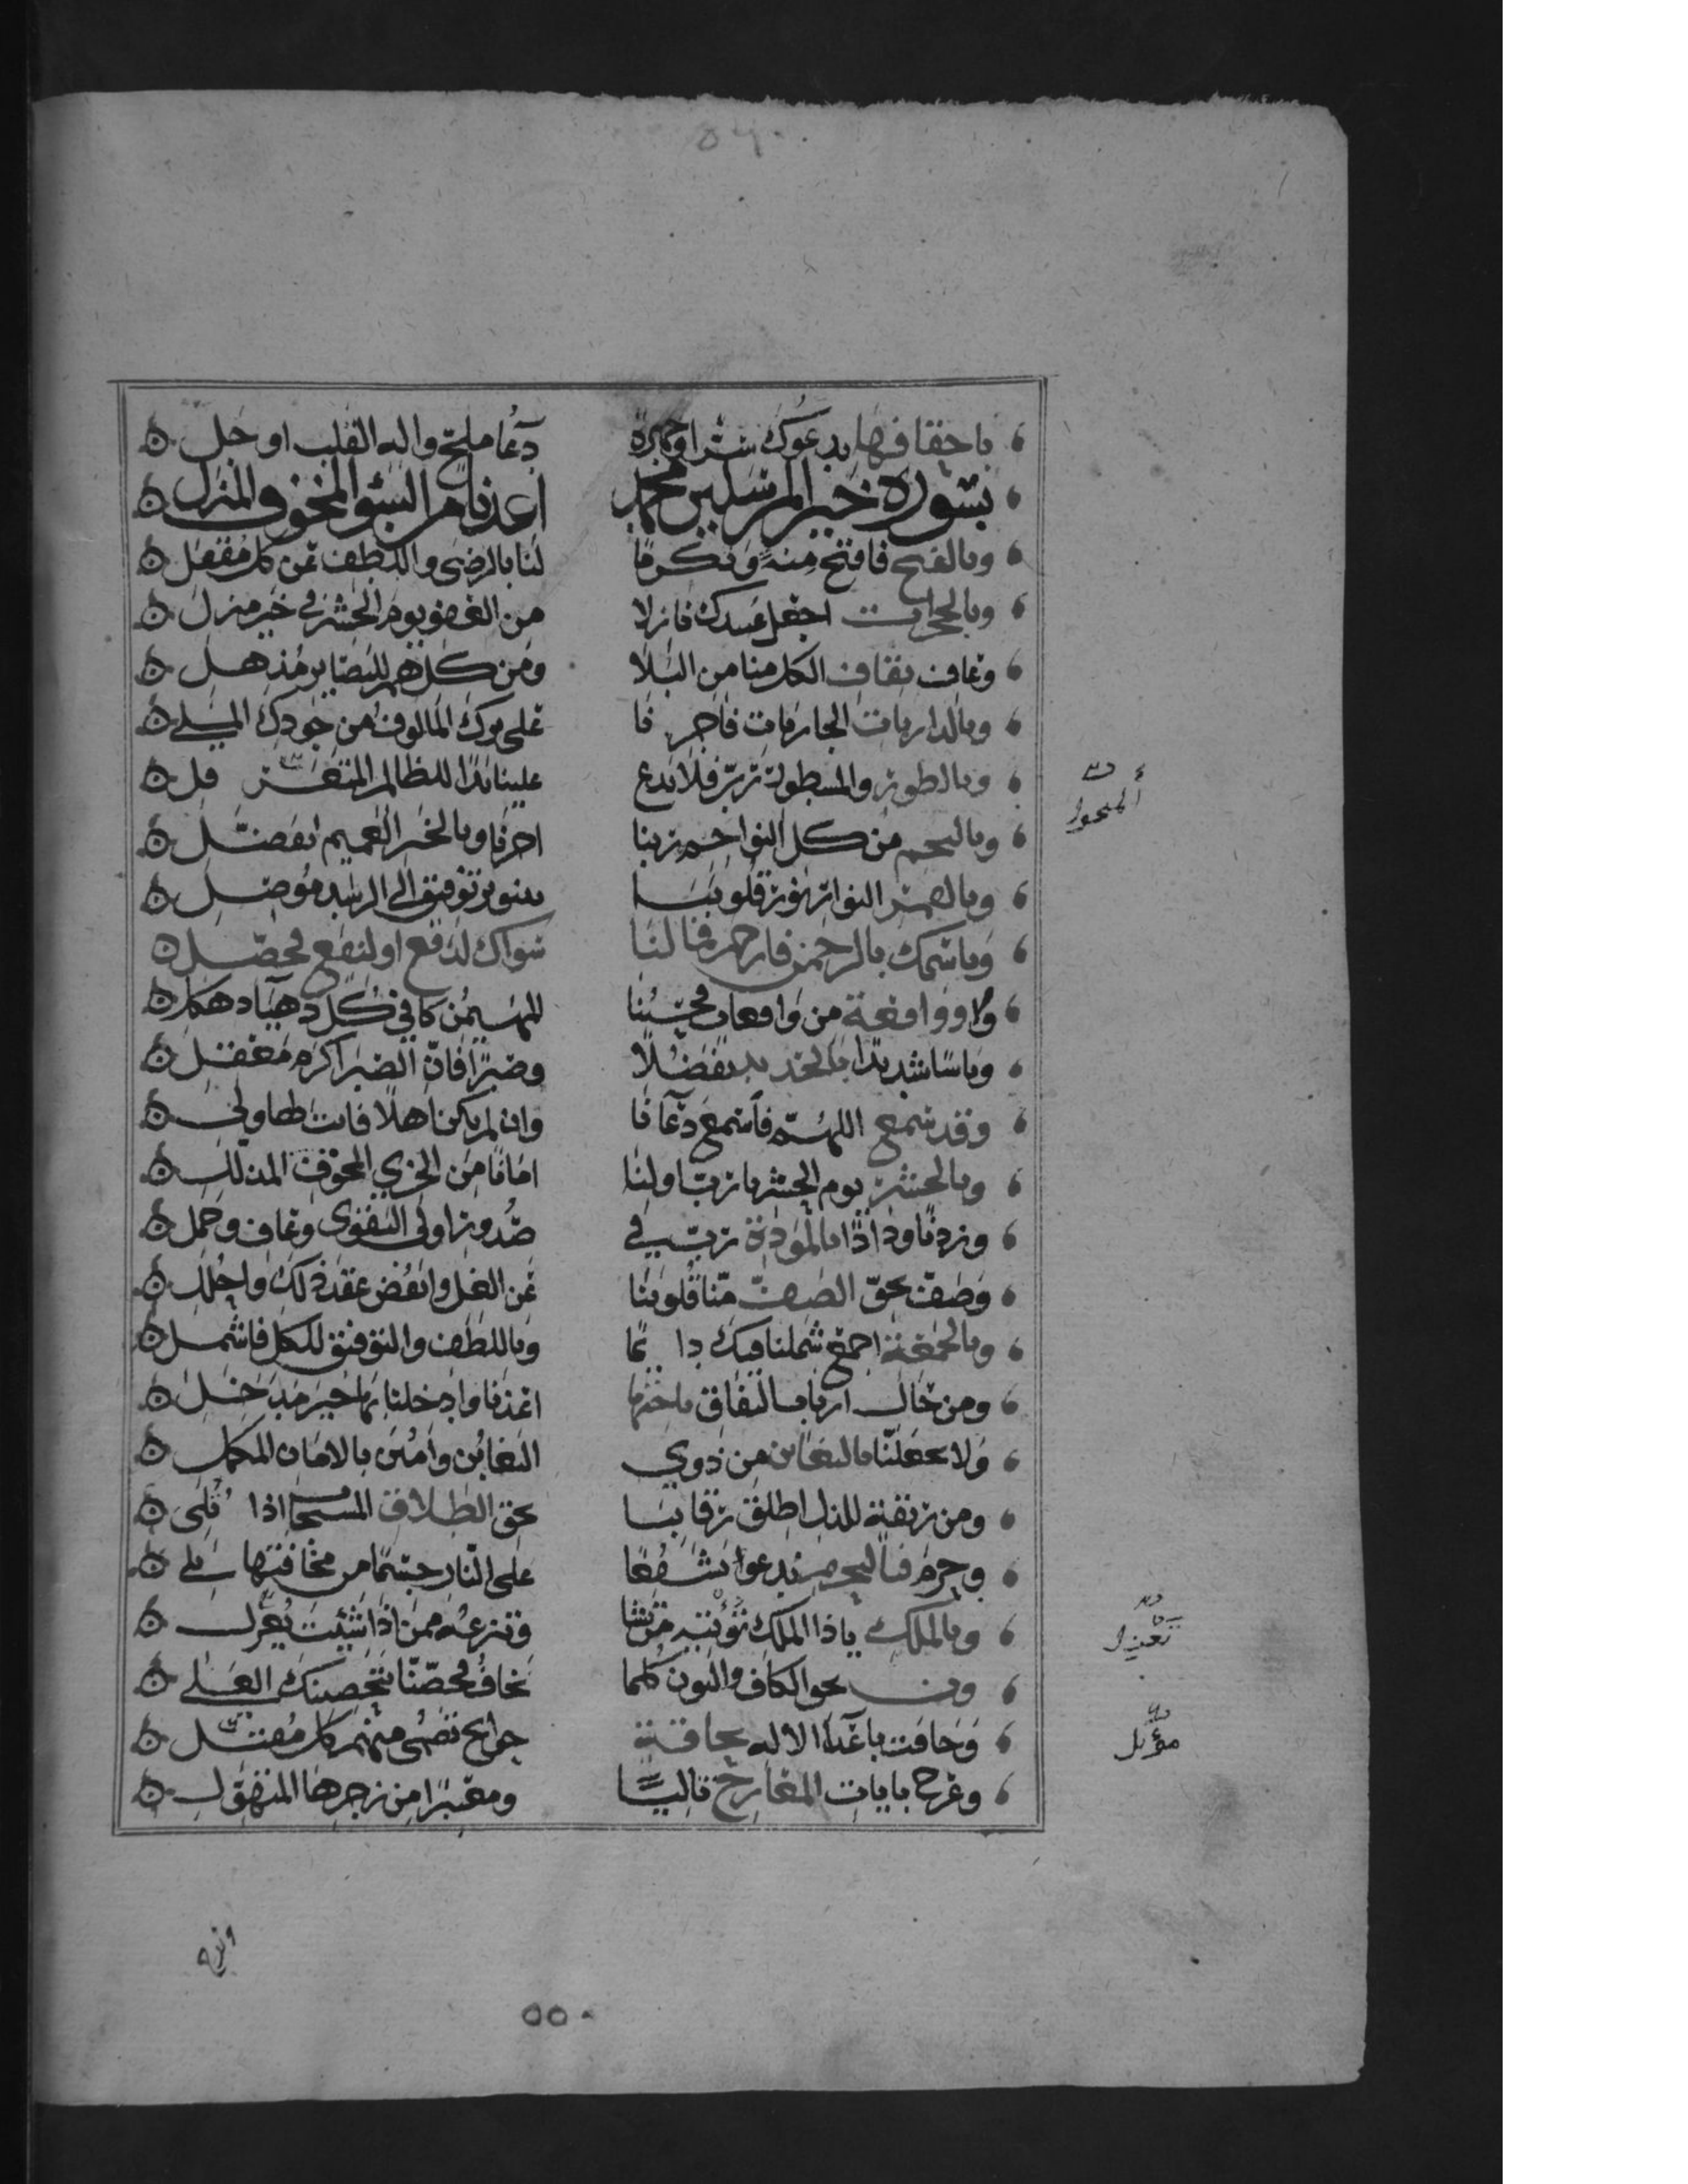 باحقافها يدعوك سرا وجهرة دعا ملح واله القلب اوجل
بسورة خير المرسلين محمد اعذنا من السئو المخوف المنزل
وبالفتح فافتح منة وتكرما لنا بالرضى واللطف عن كل مقفل
وبالحجرات اجعل عبيدك نازلا من العفو يوم الحشر في خير منزل
وعاف بقاف الكل منا من البلا ومن كل هم للبصاير مذهل
وبالذاريات الجاريات فاجر نا على برك المالوف من جودك الملي
وبالطور والمسطور رب فلا تدع علينا يدا للظالم
وبالنجم من كل النواحي ربنا اجرنا وبالخير العميم تفضل
وبالقمر النوار نور قلوبنا بنور توفيق الى الرشد موصل
وباسمك بالرحمن فارحم فما لنا سواك لدفع او لنفع محصل
وواقعة من واقعات للمهيمن كافي كل دهيا
وباسا شديدا بالحديد تفضلا وصبرا فان الصبر اكرم معقل
وقد سمع اللهم فاسمع دعانا وان لم يكن اهلا فانت لها ولي
وبالحشر يوم الحشر يا رب اولنا امانا من الخزي المخوف المذلل
وزدنا ودادا بالمودة رب في صدور اولي التقوى وعاف وجمل
وصف بحق الصف منا قلوبنا عن الغل وانفض عقد ذلك واحلل
وبالجمعة اجمع شملنا فيك دا يما وباللطف والتوفيق للكل فاشمل
ومن حال ارباب النفاق باخرها اعذنا وادخلنا بها خير مدخل
ولا تجعلنا بالتغابن من ذوي التغابن وامنن بالامان المكمل
ومن ربقة للذل اطلق رقابنا بحق الطلاق اذا تلي
وحرم بالتحريم ندعوا تشفعا على النار جسما من مخافتها بلي
وبالملك ياذا الملك تؤتيه من تشا وتنزعه ممن اذا شئت يعزل
ون بحق الكاف والنون كلما نخاف فحصنا بتحصينك العلي
وحاقت باعداء الاله بحاقة جوايح منهم كل مقتل
وعرج بايات المعارج تاليا ومعتبرا من زجرها المتهول
مؤتل
٥٥٠